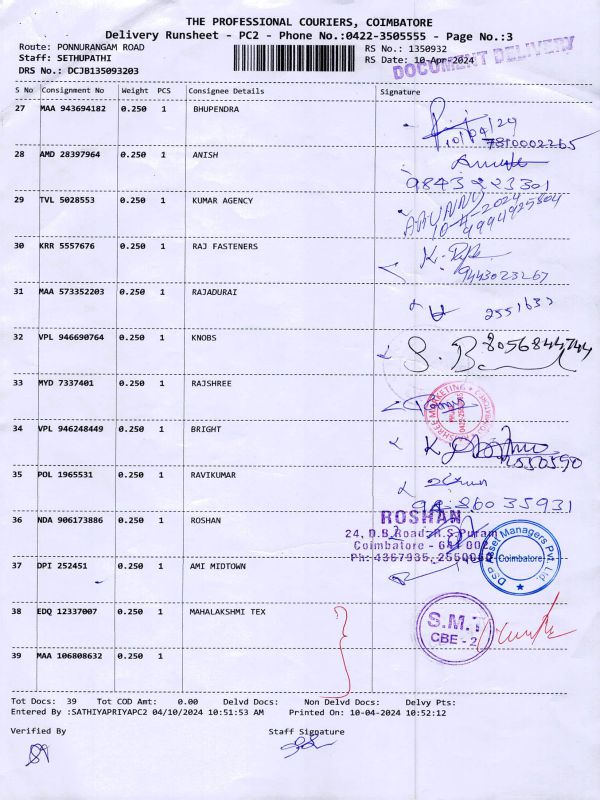 THE PROFESSIONAL COURIERS, COIMBATORE
Delivery Runsheet - PC2 - Phone No.:0422-3505555 - Page No.:3
Route: PONNURANGAM ROAD RS No.: 1350932
Staff: SETHUPATHI RS Date: 10-Apr-2024
DRS No.: DCJB135093203 DOCUMENT DELIVERY
S No Consignment No Weight PCS Consignee Details Signature
27 MAA 943694182 0.250 1 BHUPENDRA
10/04/24
7810002265
28 AMD 28397964 0.250 1 ANISH
9843223301
29 TVL 5028553 0.250 1 KUMAR AGENCY
10-4-2024
4994925804
30 KRR 5557676 0.250 1 RAJ FASTENERS
9443023267
31 MAA 573352203 0.250 1 RAJADURAI
2551633
32 VPL 946690764 0.250 1 KNOBS
8056844744
33 MYD 7337401 0.250 1 RAJSHREE
34 VPL 946248449 0.250 1 BRIGHT
2550590
35 POL 1965531 0.250 1 RAVIKUMAR
36 NDA 906173886 0.250 1 ROSHAN
ROSHAN
24, D.B.Road, R.S.Puram
Coimbatore - 641 002.
Asset Managers Pvt. Ltd
Coimbatore
37 DPI 252451 0.250 1 AMI MIDTOWN
38 EDQ 12337007 0.250 1 MAHALAKSHMI TEX
S.M.T
CBE - 2
39 MAA 106808632 0.250 1
Tot Docs: 39 Tot COD Amt: 0.00 Delvd Docs: Non Delvd Docs: Delvy Pts:
Entered By :SATHIYAPRIYAPC2 04/10/2024 10:51:53 AM Printed On: 10-04-2024 10:52:12
Verified By Staff Signature